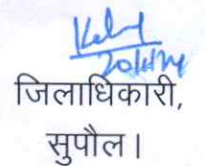 जिलाधिकारी,
सुपौल।